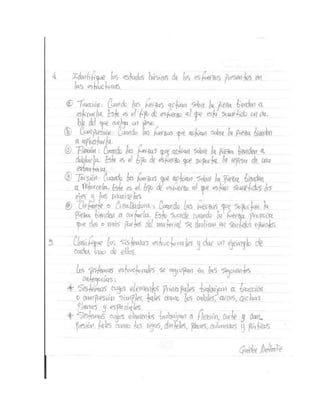 4. Identifique los estados básicos de los esfuerzos presentes en
las estructuras.
a) Tracción: Cuando las fuerzas actúan sobre la pieza tienden a
estirarla. Este es el tipo de esfuerzo al que está sometido un ca-
ble del que cuelga un peso.
b) Compresión: Cuando las fuerzas que actúan sobre la pieza tienden
a aplastarla.
c) Flexión: Cuando las fuerzas que actúan sobre la pieza tienden a
doblarla. Este es el tipo de esfuerzo que soporta la repisa de una
estantería.
d) Torsión: Cuando las fuerzas que actúan sobre la pieza tienden
a retorcerla. Este es el tipo de esfuerzo al que están sometidos los
ejes y los
e) Cortante o Cizalladura: Cuando las fuerzas que soporta la
pieza tienden a cortarla. Este sucede cuando la fuerza provoca
que dos o más partes del material se deslicen en sentidos opuestos
5. Clasifique los sistemas estructurales y dar un ejemplo de
cada uno de ellos.
Los sistemas estructurales se agrupan en las siguientes
categorías:
* Sistemas cuyos elementos principales trabajan a tracción
o compresión simples, tales como los cables, arcos, cerchas
planas y espaciales.
* Sistemas cuyos elementos trabajan a flexión, corte y com-
presión tales como las vigas, dinteles, pilares, columnas y pórticos